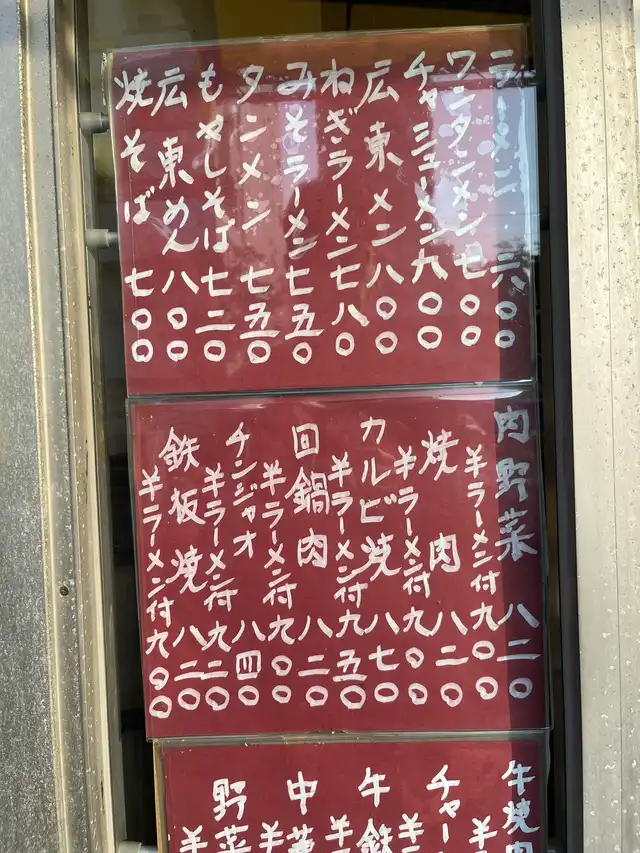 ラーメン 六〇〇
ワンタンメン 七〇〇
チャーシューメン 九〇〇
広東メン 八〇〇
ねぎラーメン 七八〇
みそラーメン 七五〇
タンメン 七五〇
もやしそば 七二〇
広東めん 八〇〇
焼そば 七〇〇
肉野菜 八二〇
半ラーメン付 九〇〇
焼肉 八二〇
半ラーメン付 九〇〇
カルビ焼 八七〇
半ラーメン付 九五〇
回鍋肉 八二〇
半ラーメン付 九〇〇
チンジャオ 八四〇
半ラーメン付 九二〇
鉄板焼 八二〇
半ラーメン付 九〇〇
牛焼肉
半
チャー
半
牛鉄
半
中華
半
野菜
半